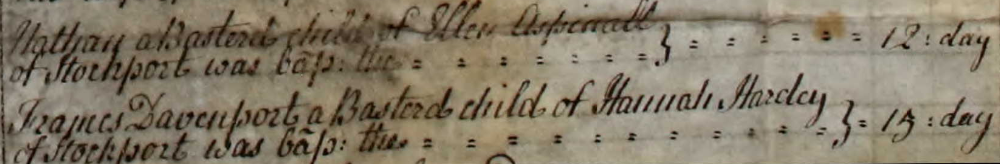 Nathan a Basterd child of Ellen Aspinall } = = = = = = 12 : day
of Stockport was bap: the = = = = = =
Frances Davenport a Basterd child of Hannah Hardey } = 15 : day
of Stockport was bap: the = = = = = = = = = =